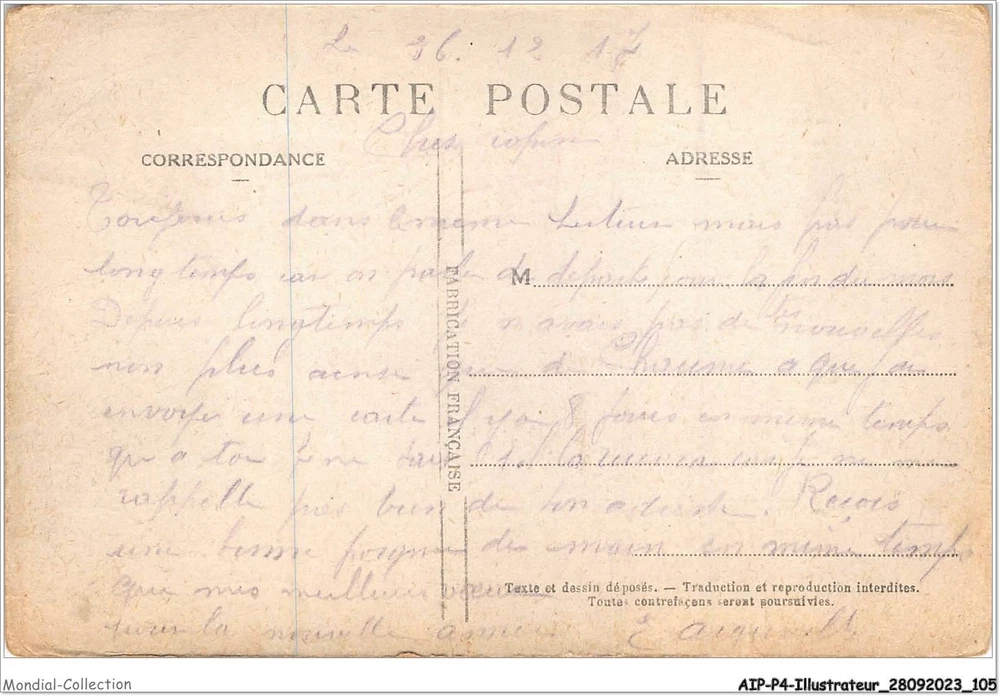 Le 26. 12 17
CARTE POSTALE
Cher copain
CORRESPONDANCE
ADRESSE
Toujours dans le même secteur mais pas pour
longtemps car on parle de départ pour la fin du mois
M
Depuis longtemps je n'avais pas de tes nouvelles
non plus ainsi que de Chaume a qui j'ai
envoyé une carte il y a 8 jours en même temps
qu a toi
rappelle pas bien de ton adresse. Reçois
une bonne poignée de main en même temps
que mes meilleurs vœux
pour la nouvelle année
FABRICATION FRANÇAISE
Texte et dessin déposés. — Traduction et reproduction interdites.
Toutes contrefaçons seront poursuivies.
Mondial-Collection
AIP-P4-Illustrateur_28092023_105